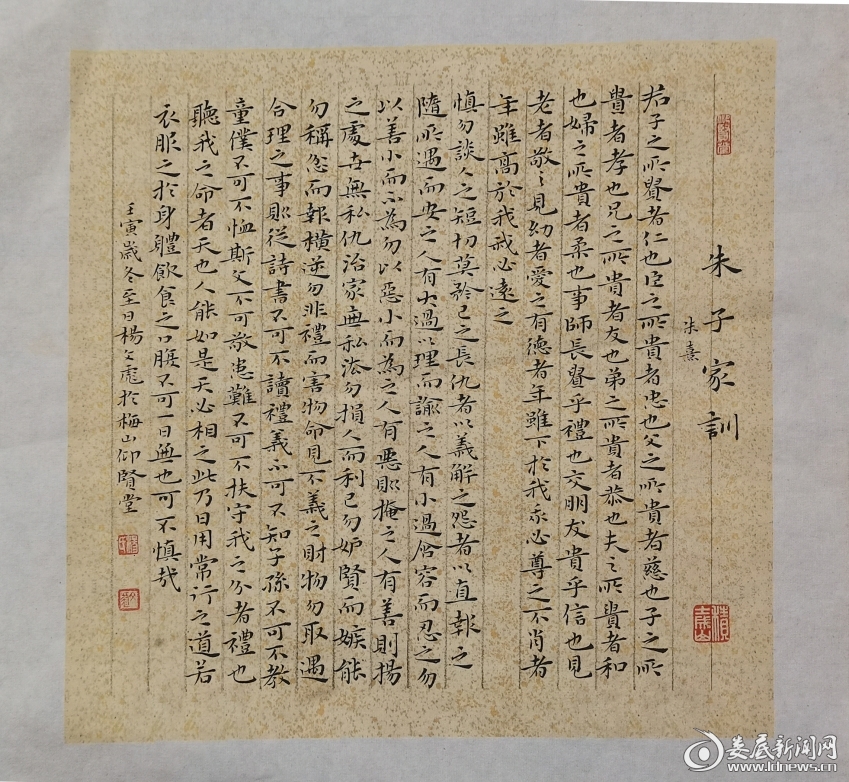 朱子家訓
朱熹
君子之所貴者仁也臣之所貴者忠也父之所貴者慈也子之所
貴者孝也兄之所貴者友也弟之所貴者恭也夫之所貴者和
也婦之所貴者柔也事師長貴乎禮也交朋友貴乎信也見
老者敬之見幼者愛之有德者年雖下於我我必尊之不肖者
年雖高於我我必遠之
慎勿談人之短切莫矜己之長仇者以義解之怨者以直報之
隨所遇而安之人有大過以理而諭之人有小過含容而忍之勿
以善小而不為勿以惡小而為之人有惡則掩之人有善則揚
之處世無私仇治家無私法勿損人而利己勿妒賢而嫉能
勿稱忿而報橫逆勿非禮而害物命見不義之財物勿取遇
合理之事則從詩書不可不讀禮義不可不知子孫不可不教
童僕不可不恤斯文不可敬患難不可不扶守我之分者禮也
聽我之命者天也人能如是天必相之此乃日用常行之道若
衣服之於身體飲食之口腹不可一日無也可不慎哉
壬寅歲冬至日楊文彪於梅山仰賢堂
婁底新聞網
www.ldnews.cn